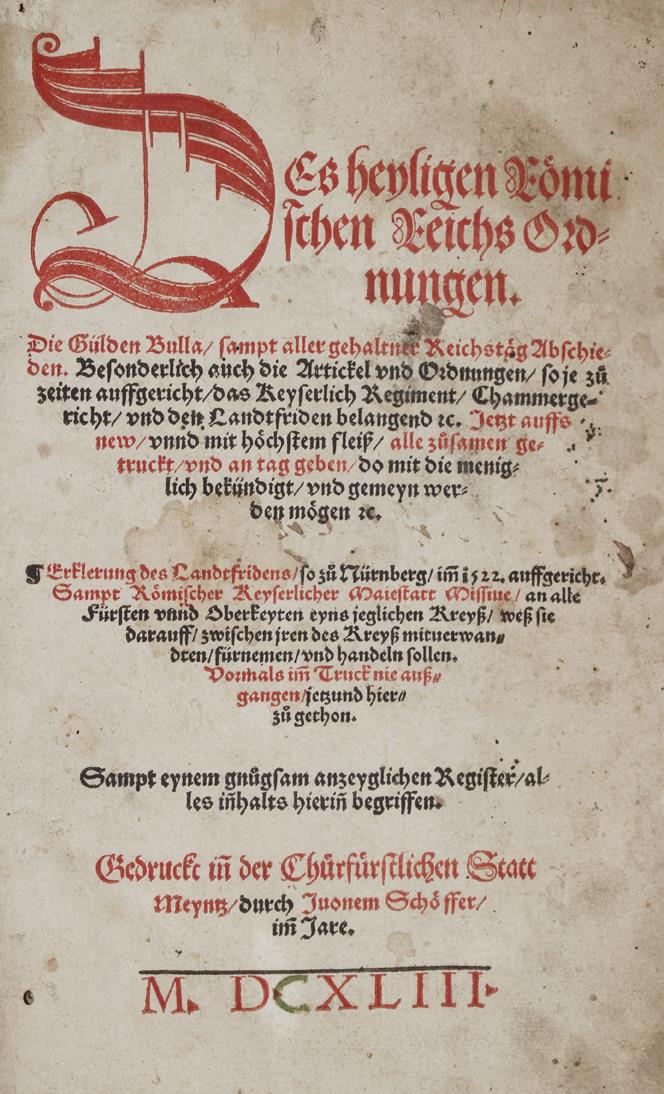 DEs heyligen Römi
schen Reichs Ord=
nungen.
Die Gülden Bulla/ sampt aller gehaltner Reichstäg Abschie=
den. Besonderlich auch die Artickel vnd Ordnungen/ so je zů
zeiten auffgericht/ das Keyserlich Regiment/ Chammerge=
richt/ vnd den Landtfriden belangend ꝛc. Jetzt auffs
new/ vnnd mit höchstem fleiß/ alle zůsamen ge=
truckt/ vnd an tag geben/ do mit die menig=
lich bekündigt/ vnd gemeyn wer=
den mögen ꝛc.
¶ Erklerung des Landtfridens/ so zů Nürnberg/ im̃ 1522. auffgericht.
Sampt Römischer Keyserlicher Maiestatt Missiue/ an alle
Fürsten vnnd Oberkeyten eyns jeglichen Kreyß/ weß sie
darauff/ zwischen jren des Kreyß mituerwan=
dten/ fürnemen/ vnd handeln sollen.
Vormals im̃ Truck nie auß=
gangen/ jetzund hier=
zů gethon.
Sampt eynem gnůgsam anzeyglichen Register/ al=
les iñhalts hieriñ begriffen.
Gedruckt iñ der Chürfürstlichen Statt
Meyntz/ durch Juonem Schöffer/
im̃ Jare.
M. DCXLIII.